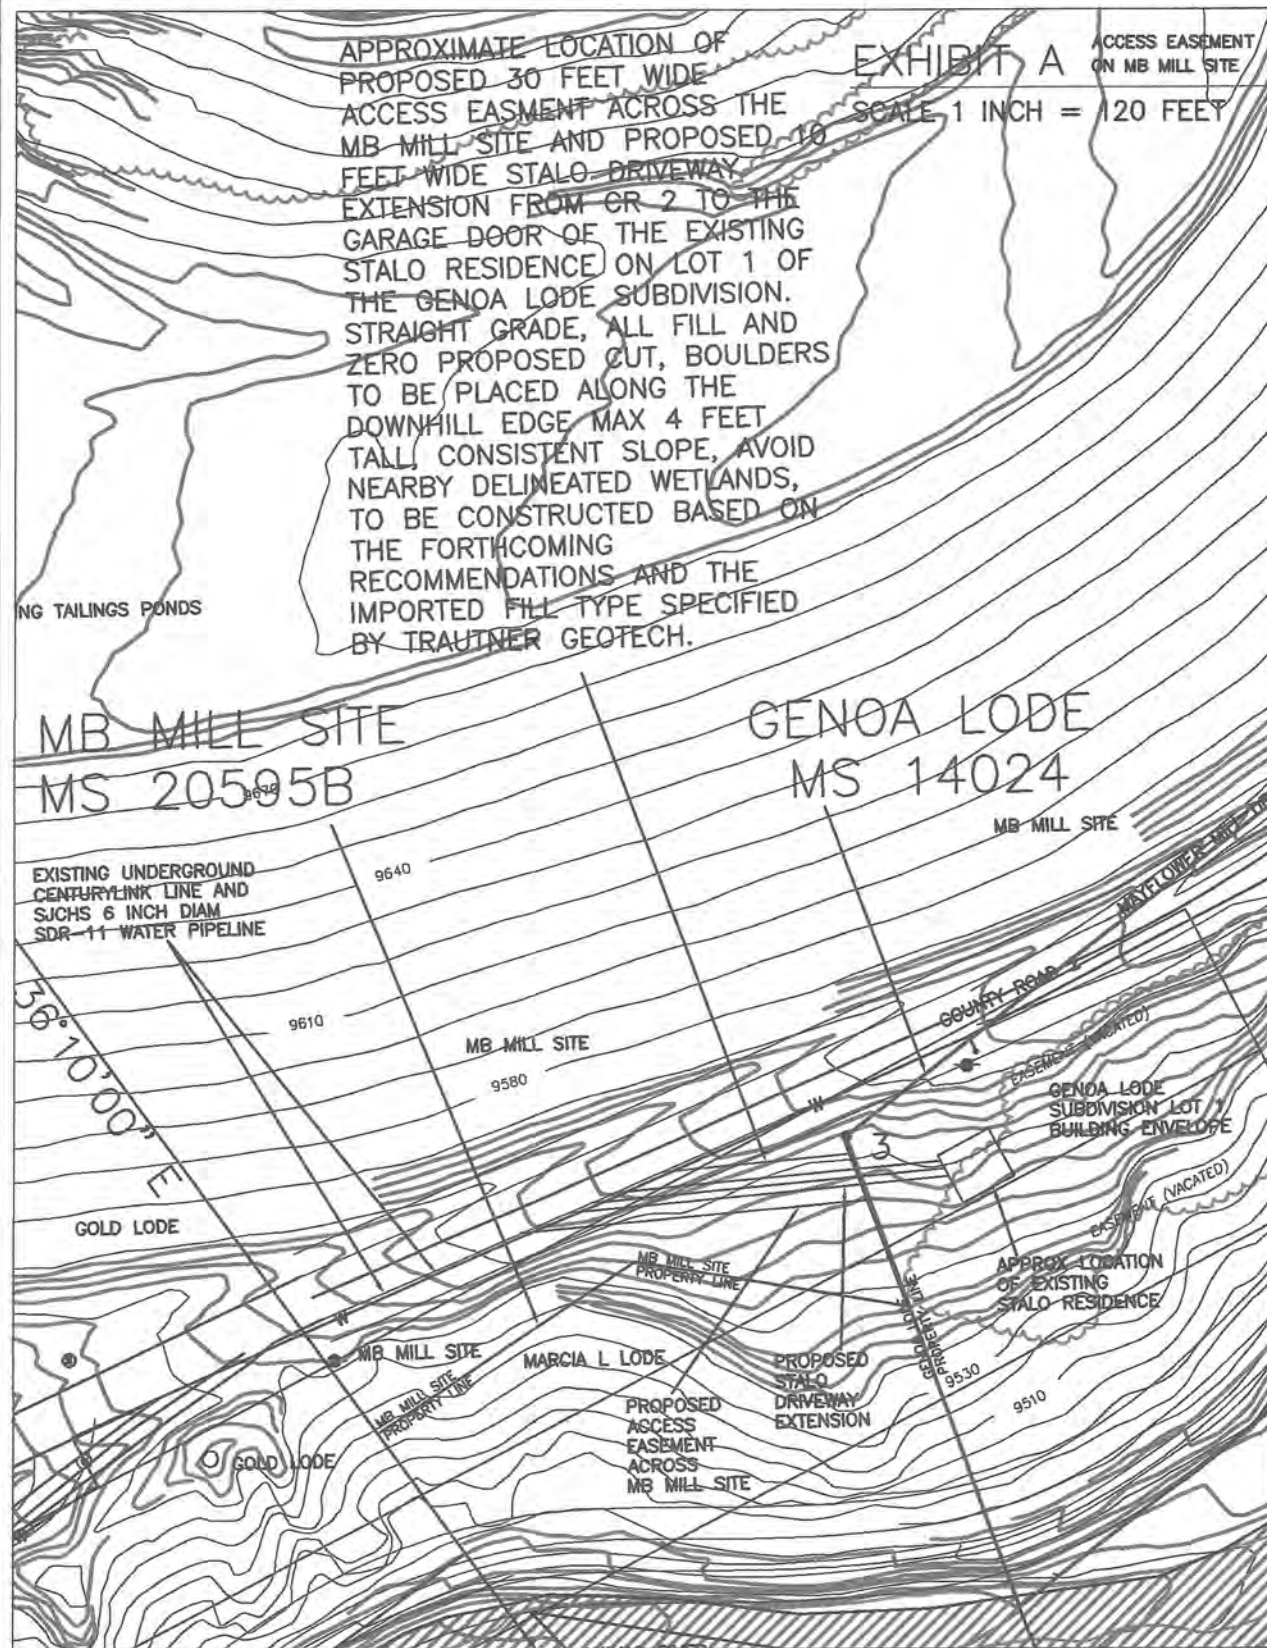 APPROXIMATE LOCATION OF
PROPOSED 30 FEET WIDE
ACCESS EASMENT ACROSS THE
MB MILL SITE AND PROPOSED 10
FEET WIDE STALO DRIVEWAY
EXTENSION FROM CR 2 TO THE
GARAGE DOOR OF THE EXISTING
STALO RESIDENCE ON LOT 1 OF
THE GENOA LODE SUBDIVISION.
STRAIGHT GRADE, ALL FILL AND
ZERO PROPOSED CUT, BOULDERS
TO BE PLACED ALONG THE
DOWNHILL EDGE MAX 4 FEET
TALL, CONSISTENT SLOPE, AVOID
NEARBY DELINEATED WETLANDS,
TO BE CONSTRUCTED BASED ON
THE FORTHCOMING
RECOMMENDATIONS AND THE
IMPORTED FILL TYPE SPECIFIED
BY TRAUTNER GEOTECH.
EXHIBIT A
ACCESS EASEMENT
ON MB MILL SITE
SCALE 1 INCH = 120 FEET
NG TAILINGS PONDS
MB MILL SITE
MS 20595B
GENOA LODE
MS 14024
9670
MB MILL SITE
MAYFLOWER MILL
EXISTING UNDERGROUND
CENTURYLINK LINE AND
SJCHS 6 INCH DIAM
SDR-11 WATER PIPELINE
9640
36°10'00" E
9610
MB MILL SITE
9580
COUNTY ROAD 2
EASEMENT (VACATED)
GENOA LODE
SUBDIVISION LOT 1
BUILDING ENVELOPE
W
3
EASEMENT (VACATED)
GOLD LODE
MB MILL SITE
PROPERTY LINE
APPROX LOCATION
OF EXISTING
STALO RESIDENCE
W
PROPERTY LINE
MB MILL SITE
MARCIA L LODE
PROPOSED
STALO
DRIVEWAY
EXTENSION
9530
9510
MB MILL SITE
PROPERTY LINE
PROPOSED
ACCESS
EASEMENT
ACROSS
MB MILL SITE
GOLD LODE